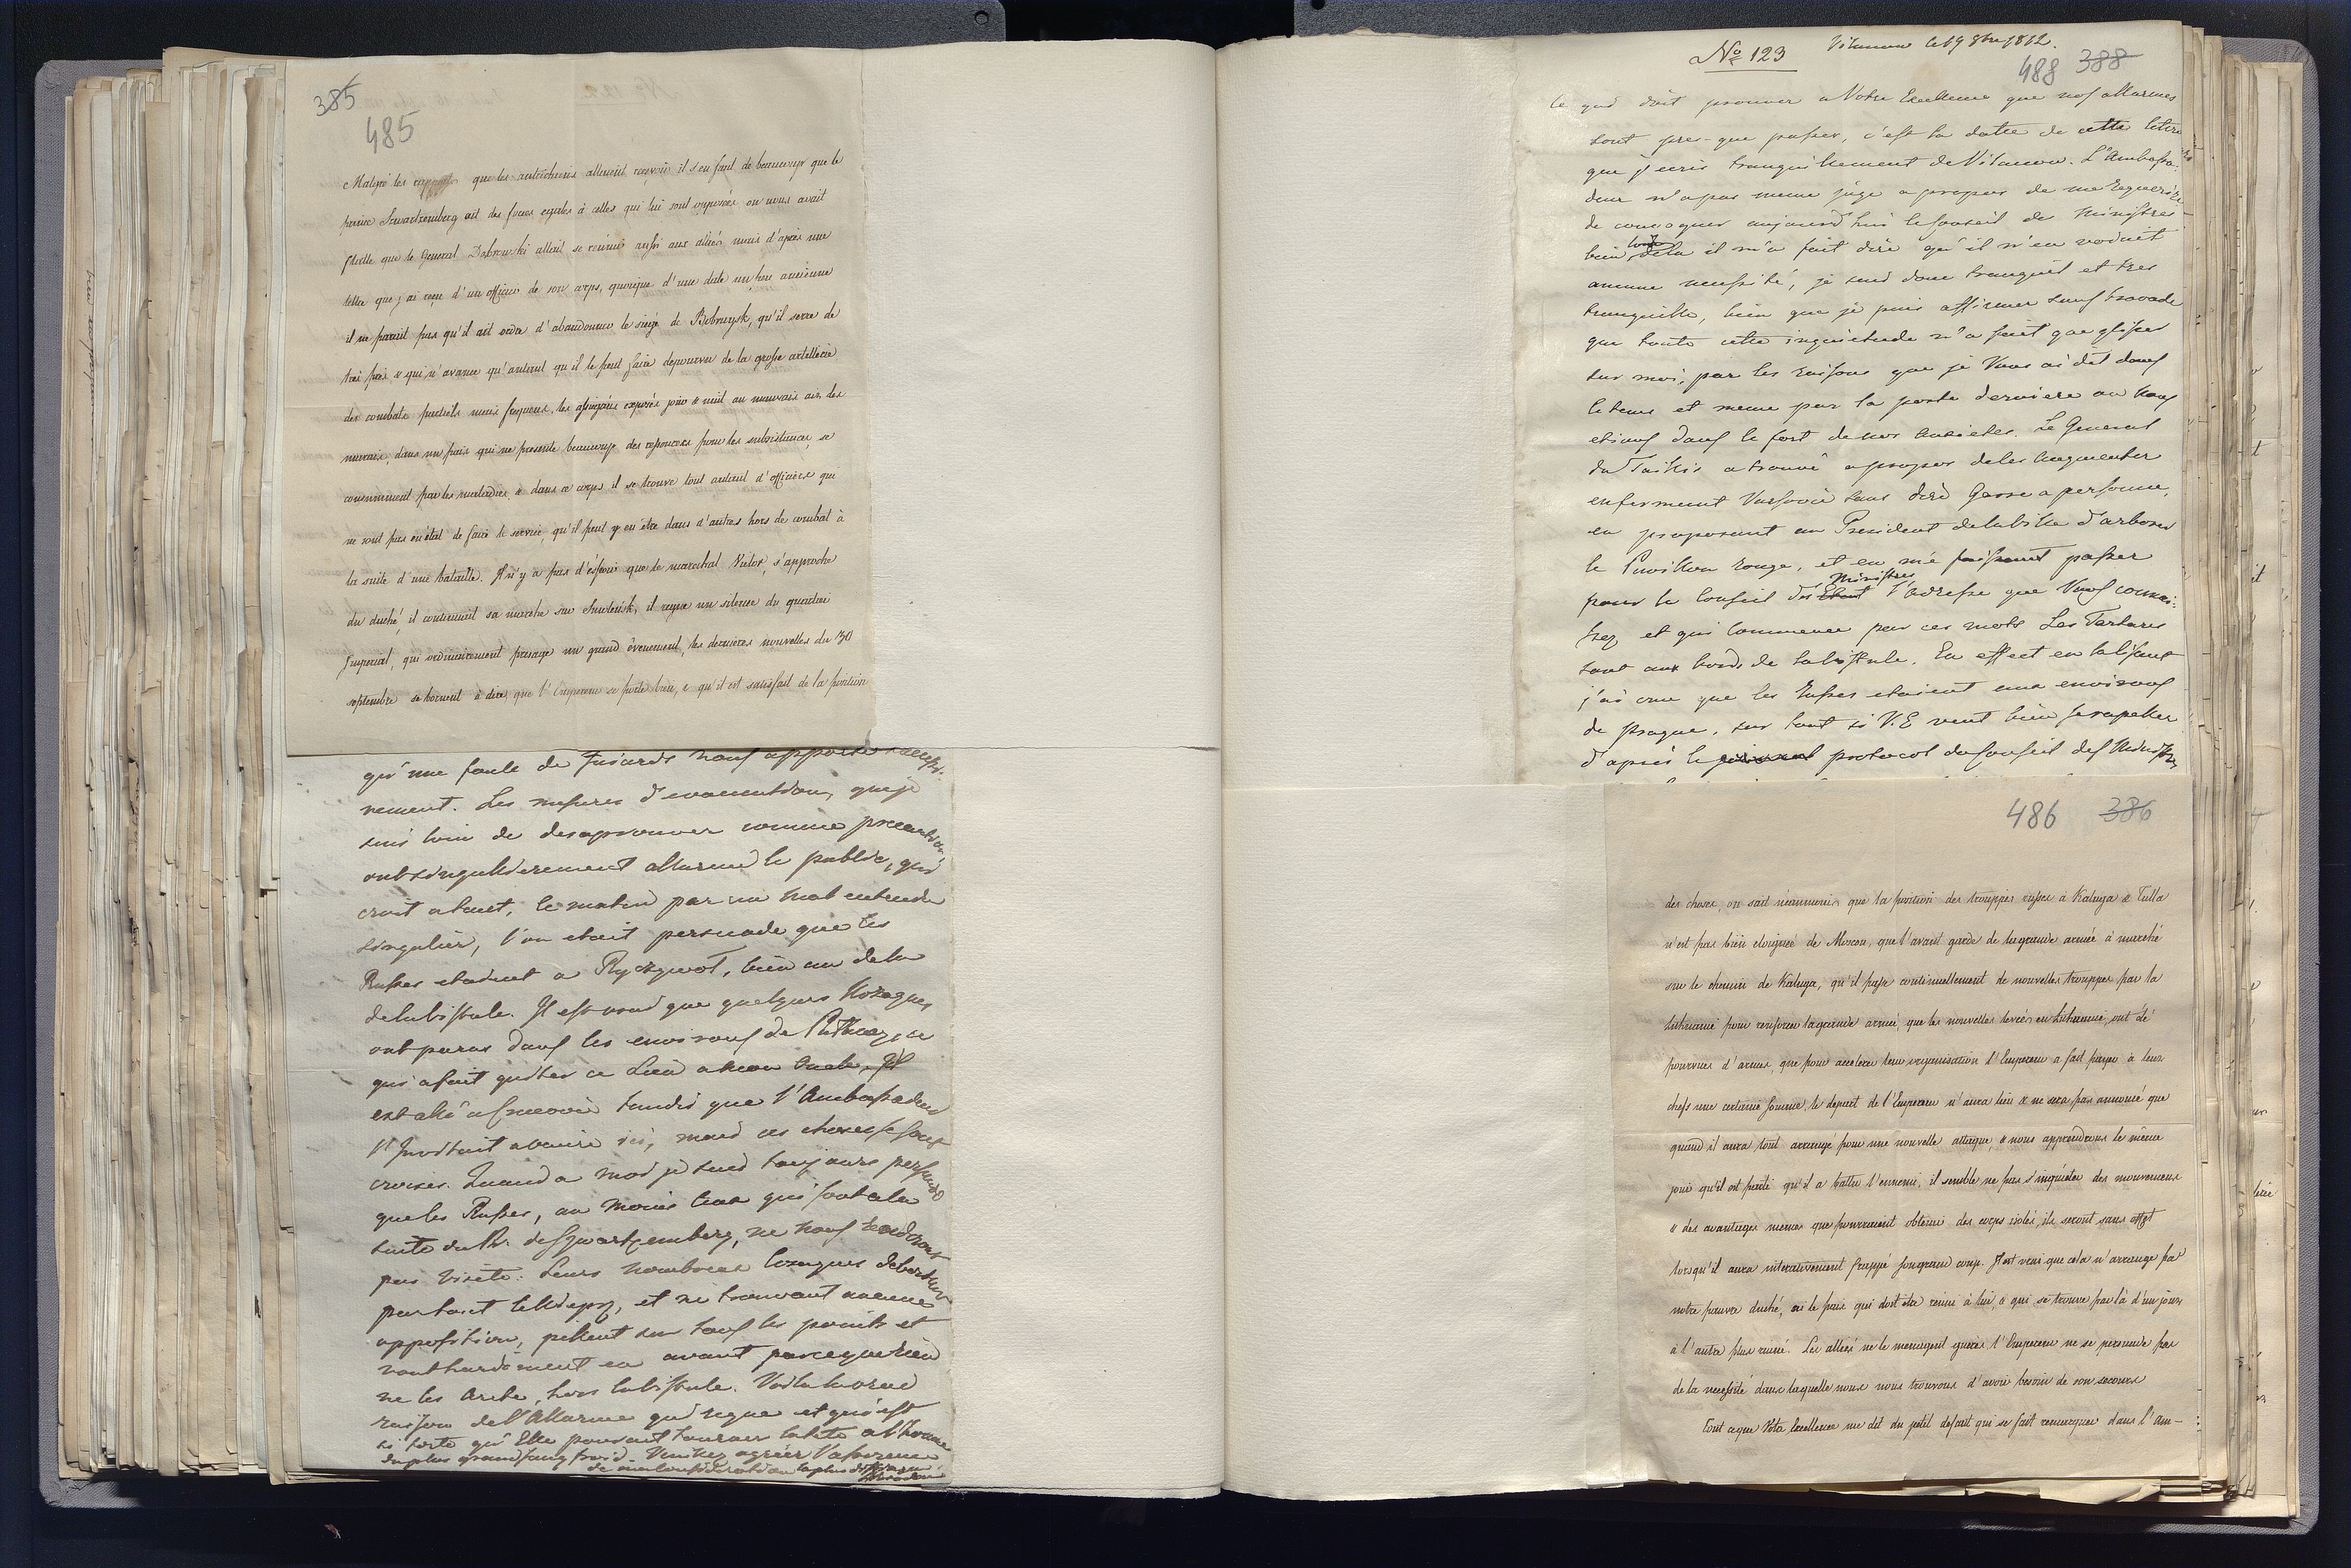 385
485
Malgré les rapports que les autrichiens allaient recevoir il s'en faut de beaucoup que le
prince Swartzemberg ait des forces egales à celles qui lui sont opposées on nous avait
flatté que le General Dabrowski allait se reunir aussi aux alliés mais d'après une
lettre que j'ai reçue d'un officier de son corps, quoique d'une date un peu ancienne
il ne parait pas qu'il ait ordre d'abandonner le siege de Bobruysk, qu'il serre de
très près & qui n'avance qu'autant qu'il le peut faire depourvu de la grosse artillerie
des combats partiels mais frequens, les assiegeans exposés jour & nuit au mauvais air des
marais, dans un pais qui ne presente beaucoup des ressources pour les subsistances, se
consumment par les maladies & dans ce corps il se trouve tout autant d'officiers qui
ne sont pas en état de faire le service, qu'il peut y en être dans d'autres hors de combat à
la suite d'une bataille. Il n'y a pas d'éspoir que le marechal Victor s'approche
du duché, il continuait sa marche sur Smolensk, il regne un silence du quartier
Imperial, qui ordinairement presage un grand évenement, les dernières nouvelles du 30
septembre se bornent à dire que l'Empereur se porte bien, & qu'il est satisfait de la position
qu'une foule de fuiards nous apporte
vement. Les mesures d'evacuation, que je
suis loin de desaprouver comme precaution
ont singulierement allarmé le public, qui
croit a tout, le matin par un mal entendu
singulier, l'on etait persuadé que les
Russes etaient a Ryczywol, bien au dela
de la Vistule. Il est vrai que quelques Kozaques
ont parus dans les environs de
qui a fait quitter ce Lieu a mon Oncle, Il
est allé a Varsovie tandis que l'Ambassadeur
l'Invitait a venir ici, mais ces choses se sont
croisées. Quand a moi je suis toujours persuadé
que les Russes, au moins ceux qui sont a la
suite du Pr: de Szwartzemberg, ne nous rendront
pas visite. Leurs nombreux Cosaques debordent
partout le pays, et ne trouvant aucune
opposition, pillent sur tous les points et
vont hardiment en avant parceque rien
ne les Arete, hors la Vistule. Voila la vraie
raison de l'Allarme qui regne et qui est
si forte qu'Elle pouvait tourner la tete a l'homme
du plus grand sang froid. Veuillez agréer l'assurance
de ma Consideration la plus distinguée
No 123 Vilanow le 19 8bre 1812.
488 388
Ce qui doit prouver a Votre Excellence que nos allarmes
sont pres-que passées, c'est la datte de cette lettre
que j'ecris tranquillement de Vilanow. L'Ambassa-
deur n'a pas meme jugé a propos de me requerir
de convoquer aujourd'hui le Conseil des Ministres
bien loin de la il m'a fait dire qu'il n'en voduit
aucune necessité, je suis donc tranquil et tres
tranquille, bien que je puis affirmer sans bravade
que toute cette inquietude n'a fait que glisser
sur moi, par les raisons que je Vous ai dit dans
le tems et meme par la poste derniere ou nous
etions dans le fort de nos anxietes. Le General
du Taillis a trouvé a propos de les augmenter
en fermant Varsovie sans dire Garre a personne,
en proposant au President de la Ville d'arborer
le Pavillon rouge, et en me faissant passer
pour le Conseil des Ministres l'adresse que Vous connai-
trez et qui Commence par ces mots Les Tartares
sont aux bords de la Vistule. En effect en la lisant
j'ai cru que les Russes etaient aux environs
de Prague, sur tout si V.E veut bien se rapeller
d'après le protocol du Conseil des Ministres
486 386
des choses, on sait néanmoins que la position des trouppes russes à Kaluga & Tulla
n'est pas bien eloignée de Moscou, que l'avant garde de la grande armée à marché
sur le chemin de Kaluga, qu'il passe continuellement de nouvelles trouppes par la
Lithuanie pour renforcer la grande armée, que les nouvelles levées en Lithuanie, ont été
pourvues d'armes, que pour accelerer leur organisation l'Empereur a fait payer à leurs
chefs une certaine somme, le depart de l'Empereur n'aura lieu & ne sera pas annoncé que
quand il aura tout arrangé pour une nouvelle attaque, & nous apprendrons le même
jour qu'il est parti qu'il a battu l'ennemi, il semble ne pas s'inquieter des mouvemens
& des avantages memes que pourraient obtenir des corps isolés, ils seront sans effet
lorsqu'il aura iterativement frappé son grand coup. Il est vrai que cela n'arrange pas
notre pauvre duché, ni le pais qui doit etre reuni à lui, & qui se trouve par là d'un jour
à l'autre plus ruiné. Les alliés ne le menagent guères, l'Empereur ne se persuade pas
de la necessité dans laquelle nous nous trouvons d'avoir besoin de son secours
Tout ce que Votre Excellence me dit du petit defaut qui se fait remarquer dans l'Am-